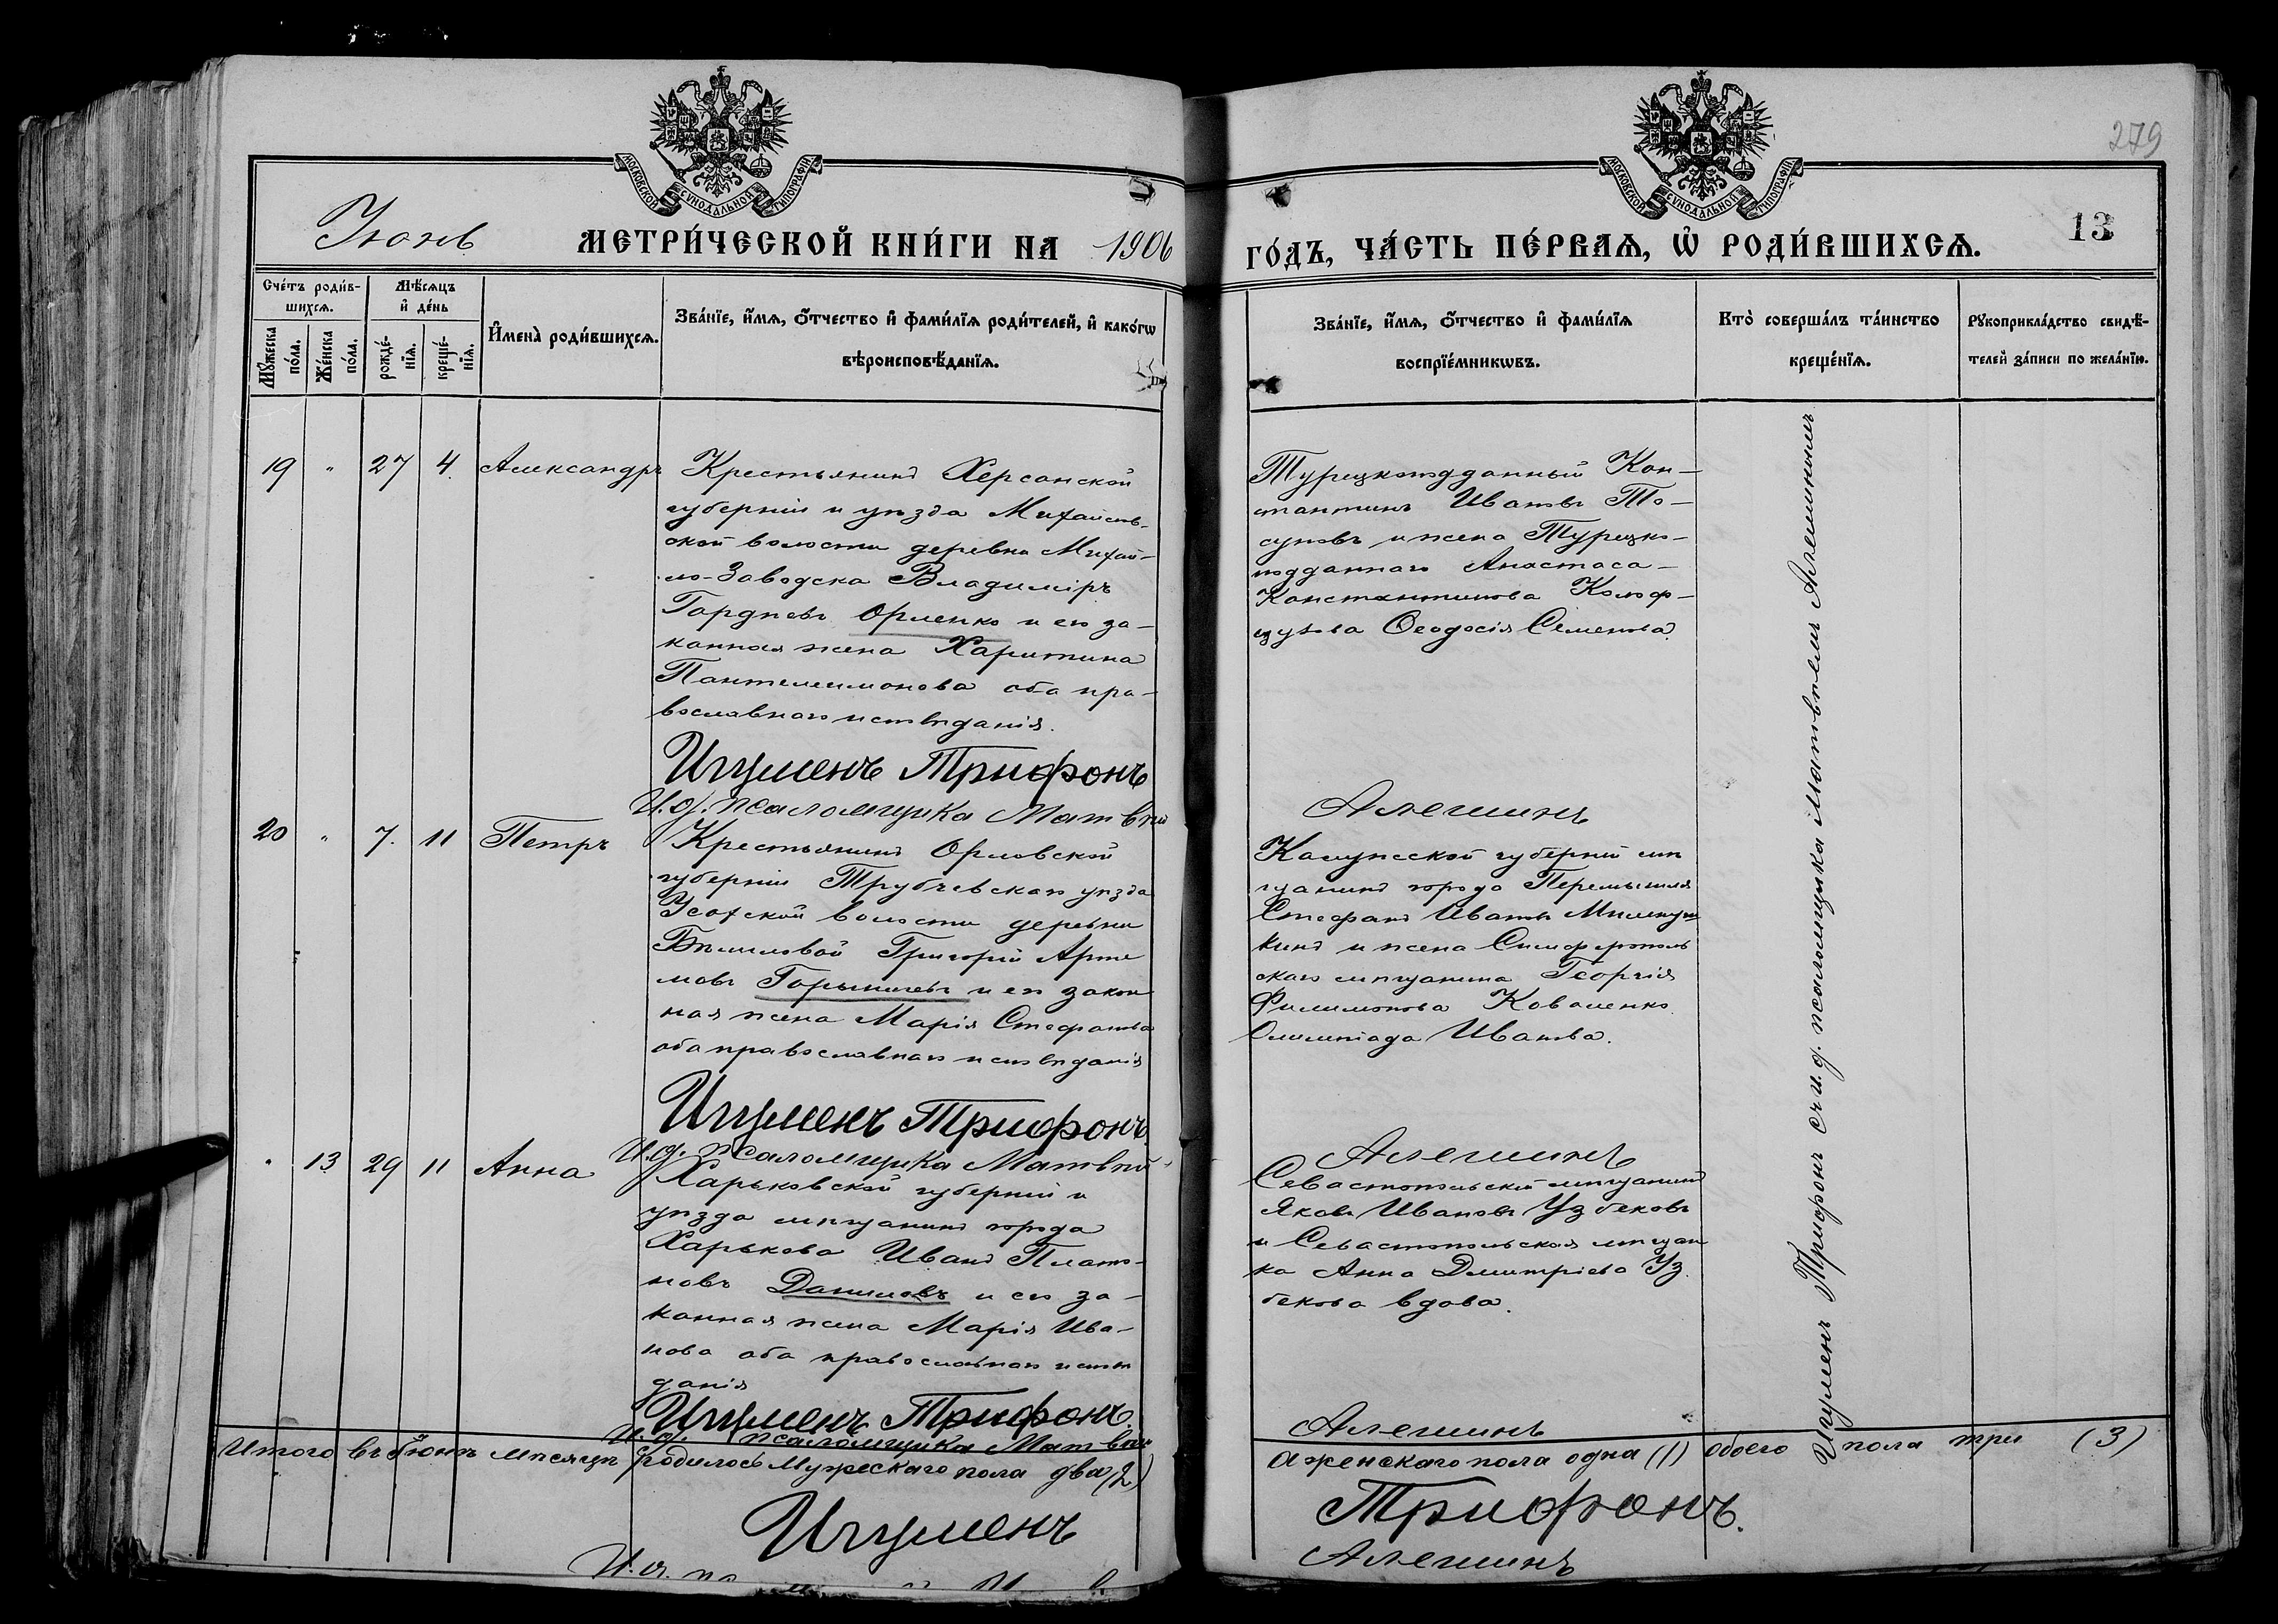 279
МОСКОВСКОЙ СУНОДАЛЬНОЙ ТИПОГРАФІИ
МОСКОВСКОЙ СУНОДАЛЬНОЙ ТИПОГРАФІИ
Іюнь
МЕТРИ́ЧЕСКОЙ КНИ́ГИ НА 1906
ГО́ДЪ, ЧА́СТЬ ПЕ́РВАѦ, Ѡ҆ РОДИ́ВШИХСѦ.
13
Сче́тъ роди́в-
шихсѧ.
Мꙋ́жеска
по́ла.
Же́нска
по́ла.
Мѣ́сѧцъ
и҆ де́нь
рожде́-
нїѧ.
креще́-
нїѧ.
И҆мена̀ роди́вшихсѧ.
Зва́нїе, и҆́мѧ, ѻ҆́тчество и҆ фами́лїѧ роди́телей, и҆ како́гѡ
вѣроисповѣ́данїѧ.
Зва́нїе, и҆́мѧ, ѻ҆́тчество и҆ фами́лїѧ
воспрїе́мникѡвъ.
Кто̀ соверша́лъ та́инство
креще́нїѧ.
Рꙋкоприкла́дство свидѣ́-
телей за́писи по жела́нїю.
19 " 27 4. Александръ
Крестьянинъ Херсонской
губерніи и уѣзда Михайлов-
ской волости деревни Михай-
ло-Заводска Владиміръ
Гордѣевъ Орленко и его за-
конная жена Харитина
Пантелеимонова оба пра-
вославнаго исповѣданія.
Игуменъ Трифонъ
И.д. псаломщика Матвѣй
Турецкоподданный Кон-
стантинъ Ивановъ То-
суновъ и жена Турецко-
подданнаго Анастаса
Константинова
Ѳеодосія Семенова.
Алешинъ
20 " 7. 11 Петръ
Крестьянинъ Орловской
губерніи Трубчевскаго уѣзда
Усохской волости деревни
Григорій Арте
мовъ Горыничевъ и его закон
ная жена Марія Стефанова
оба православнаго исповѣданія
Игуменъ Трифонъ.
И.д. псаломщика Матвѣй
Калужской губерніи мѣ
щанинъ города Перемышля
Стефанъ Ивановъ
кинъ и жена Симферополь
скаго мѣщанина Георгія
Филимонова Коваленко
Олимпіада Иванова.
Алешинъ
" 13 29 11 Анна
Харьковской губерніи и
уѣзда мѣщанинъ города
Харькова Иванъ Плато-
новъ Даниловъ и его за-
конная жена Марія Ива-
нова оба православнаго исповѣ
данія
Игуменъ Трифонъ.
И.д. псаломщика Матвѣй
Севастопольскій мѣщанинъ
Яковъ Ивановъ Узбековъ
и Севастопольская мѣщан
ка Анна Дмитріева Уз
бекова вдова.
Алешинъ
Игуменъ Трифонъ съ и.д. псаломщика Матвѣемъ Алешинымъ
Итого въ Іюнѣ мѣсяцѣ родилось Мужескаго пола два (2)
а женскаго пола одна (1) обоего пола три (3)
Игуменъ
Трифонъ.
Алешинъ